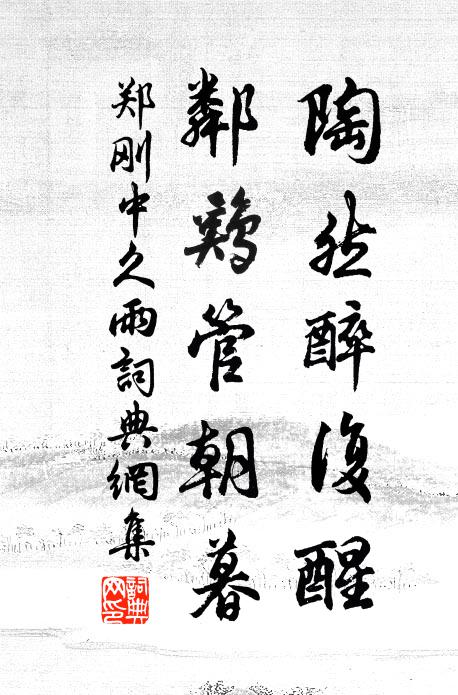 陶然醉復醒
鄰鷄管朝暮
郑刚中久雨詞典網集
詞典
网印